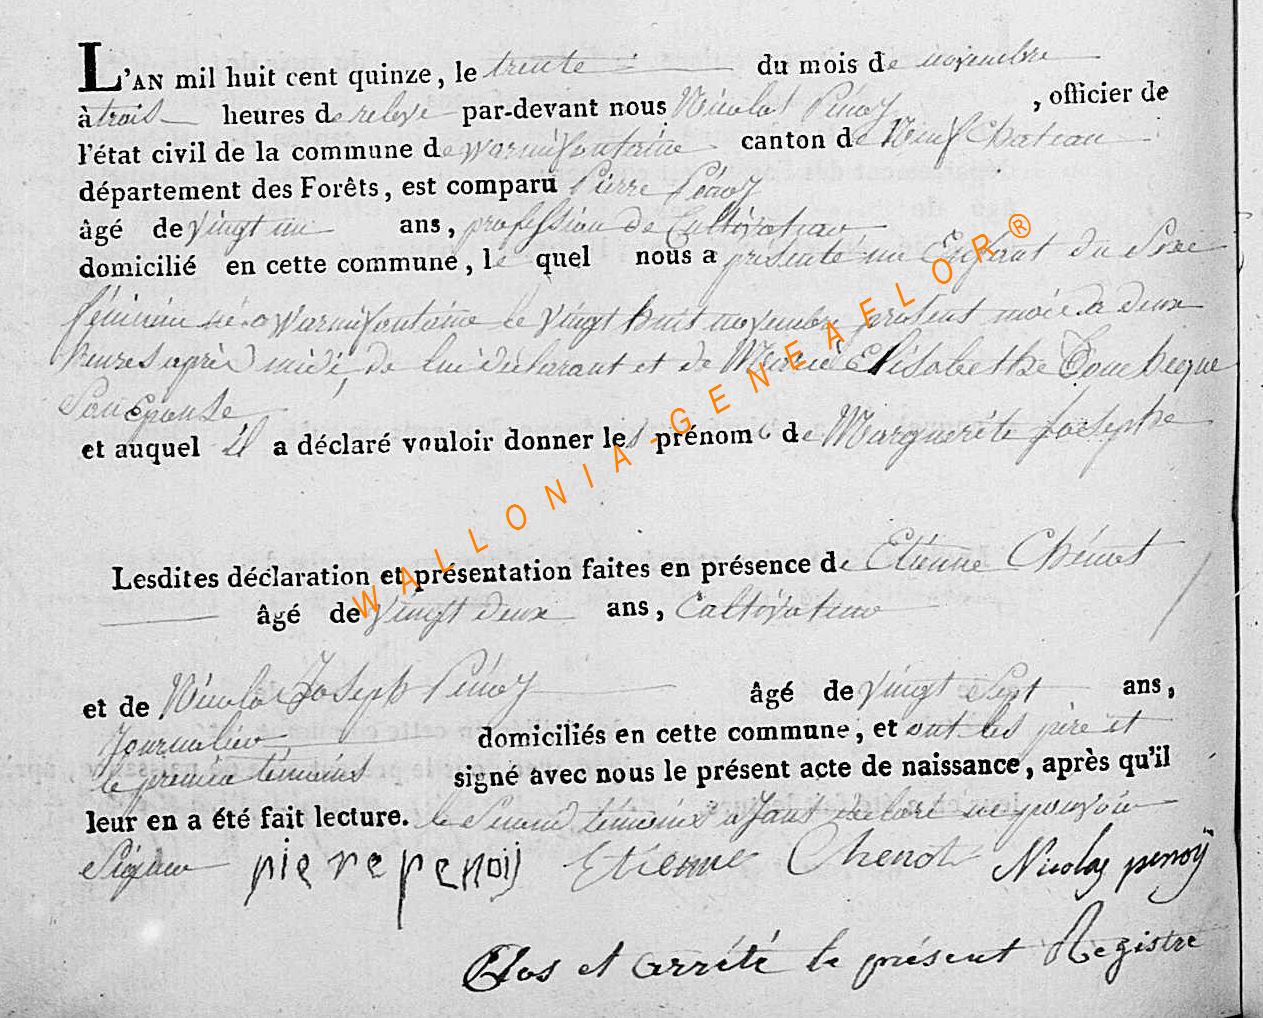 L'AN mil huit cent quinze, le trente du mois de novembre
à trois heures de relevé par-devant nous Nicolas Pénoy, officier de
l'état civil de la commune de Warmifontaine canton de Neuf Chateau
département des Forêts, est comparu Pierre Pénoy
âgé de vingt un ans, profession de Cultivateur
domicilié en cette commune, le quel nous a présenté un Enfant du Sexe
féminin né a Warmifontaine le vingt huit novembre présent mois a deux
heures après midi, de lui déclarant et de Marie Elisabethe
Son Epouse
et auquel il a déclaré vouloir donner les prénoms de Marguerite Josephe
Lesdites déclaration et présentation faites en présence de Etienne Chénot
âgé de vingt deux ans, Cultivateur
et de Nicolas Joseph Pénoy âgé de vingt Sept ans,
Journalier domiciliés en cette commune, et ont les père et
le premier témoins signé avec nous le présent acte de naissance, après qu'il
leur en a été fait lecture. le Second témoins ayant déclaré ne pouvoir
Signer pierre penoij Etienne Chenot Nicolas penoÿ
Clos et arrété le présent Registre
WALLONIA-GENEAFLOR®